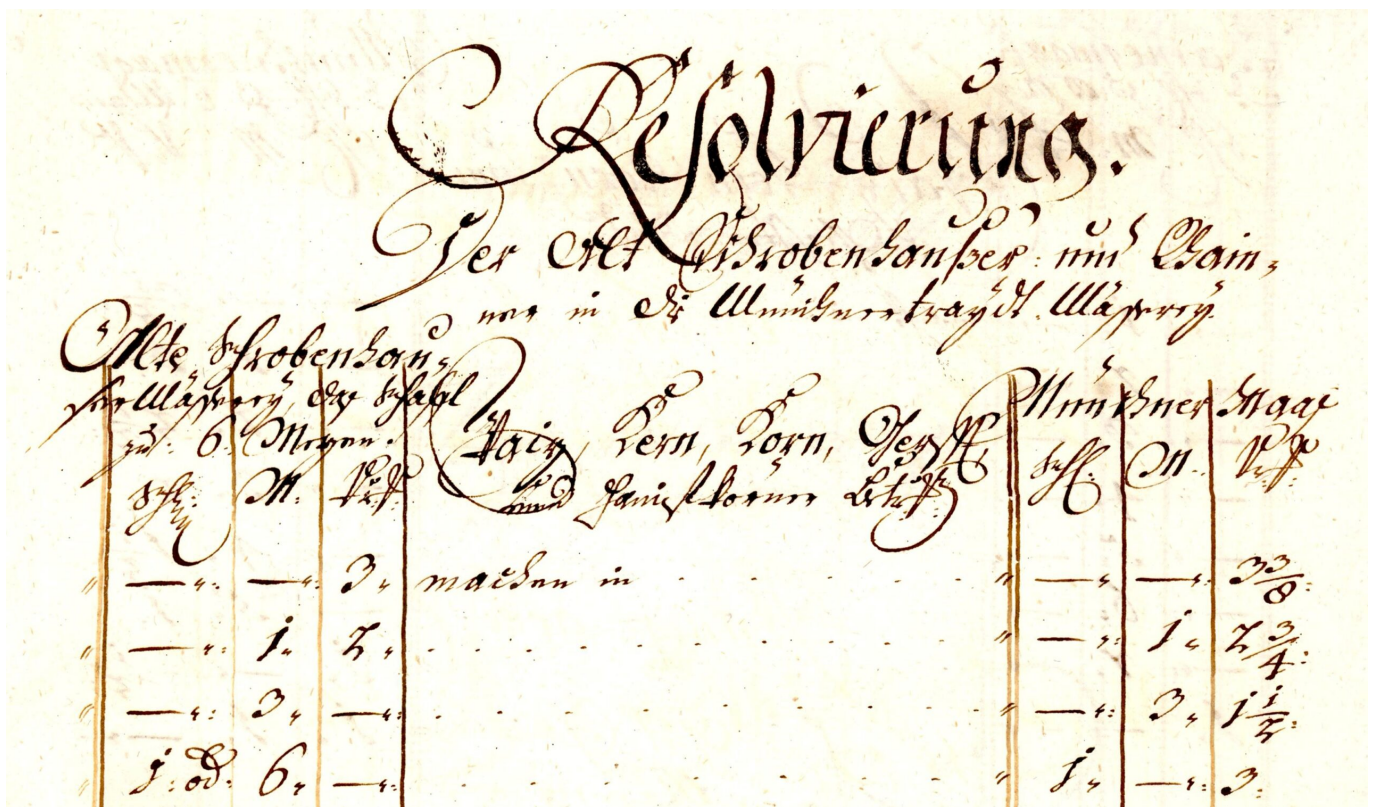 Resolvierung.
Der Alt Schrobenhaußer: und Rain-
ner in die Münchnertraydt Mässerey.
Alte Schrobenhau-
ser Mässerey, das Schäfl
zu: 6. Mezen.
Schl: M. Vrtl:
Waiz, Kern, Korn, Gerst,
und Hanifkörner Betrf:
Münchner Maas
Schl: M. Vrtl:
" — ": — ": 3 " machen in . . . . . . " — " — ": 3 3/8:
" — ": 1 " 2 " . . . . . . . . . " — ": 1 " 2 3/4:
" — ": 3 " — ": . . . . . . . . . " — ": 3 " 1 1/2:
" 1: od: 6 " — ": . . . . . . . . . " 1 " — ": 3: